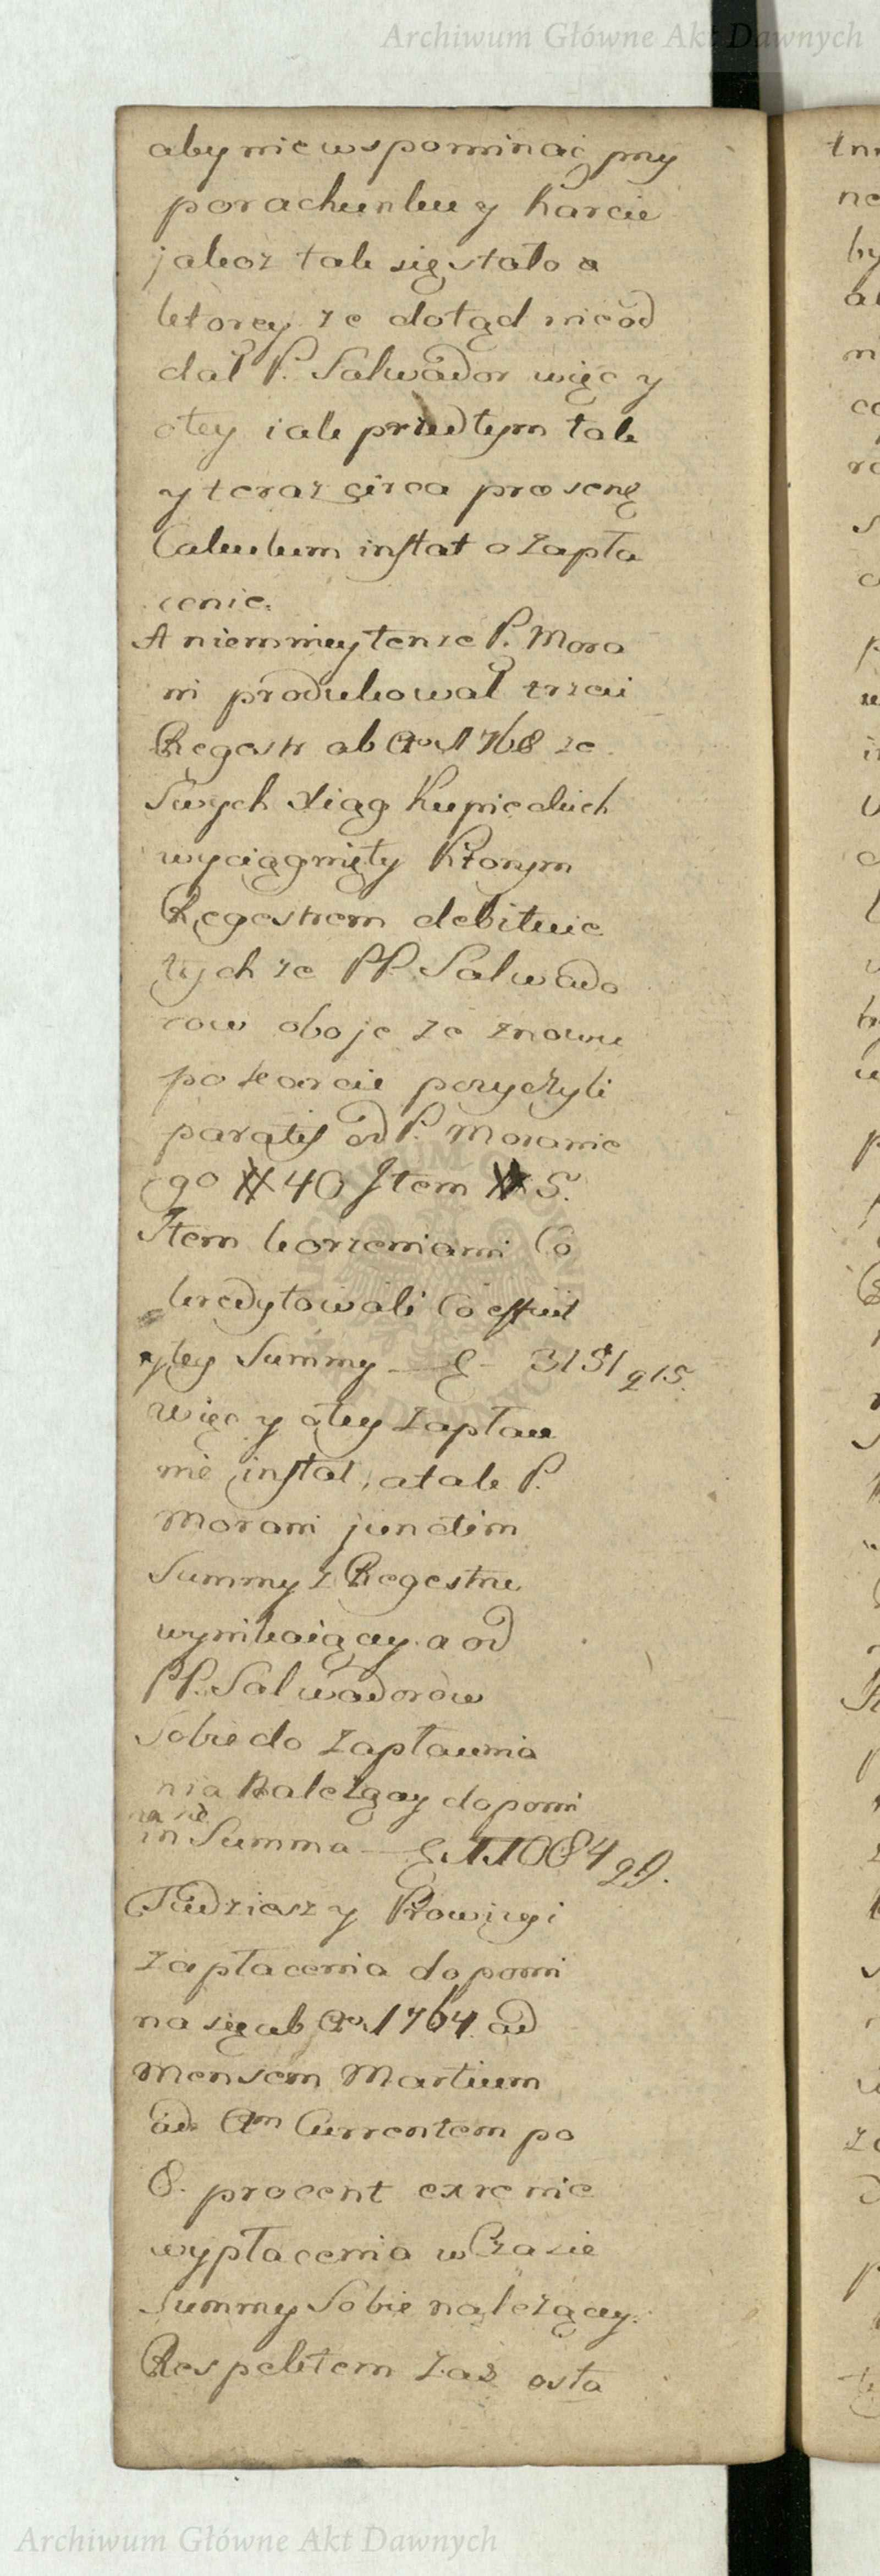 Archiwum Główne Akt Dawnych
aby nie wspominać przy
porachunku y karcie
jakoz tak się stało a
ktorey ze dotąd nieod
dał P. Salwador więc y
otey iak przedtym tak
y teraz circa pro senę
Calculum instat o zapła
cenie.
A niemniey tenze P. Mora
ni produkował trzeci
Regestr ab Ao. 1768 ze
swych Xiąg Kupieckich
wyciągnięty Ktorym
Regestrem debituie
tychze PP. Salwado
row oboje ze znowu
po karcie pozyczyli
paratis od P. Moranie
go # 40 Item # 5.
Item korzeniami Co
kredytowali Co efficit
y tey Summy — ƒ — 3151 g 15.
więc y otey zapłace
nie instat, a tak P.
Morani junctim
Summy z Regestru
wynikaiącey a od
PP. Salwadorow
Sobie do zapłacenia
nia należącey dopomi
na się
in Summa — ƒ 11084 g 9.
Tudziesz y Prowizyi
zapłacenia dopomi
na się ab Ao. 1764. ad
Mensem Martium
ad Am Currentem po
8. procent ex re nie
wypłacenia w Czasie
Summy Sobie należącey.
Respektem zas osta
Archiwum Główne Akt Dawnych